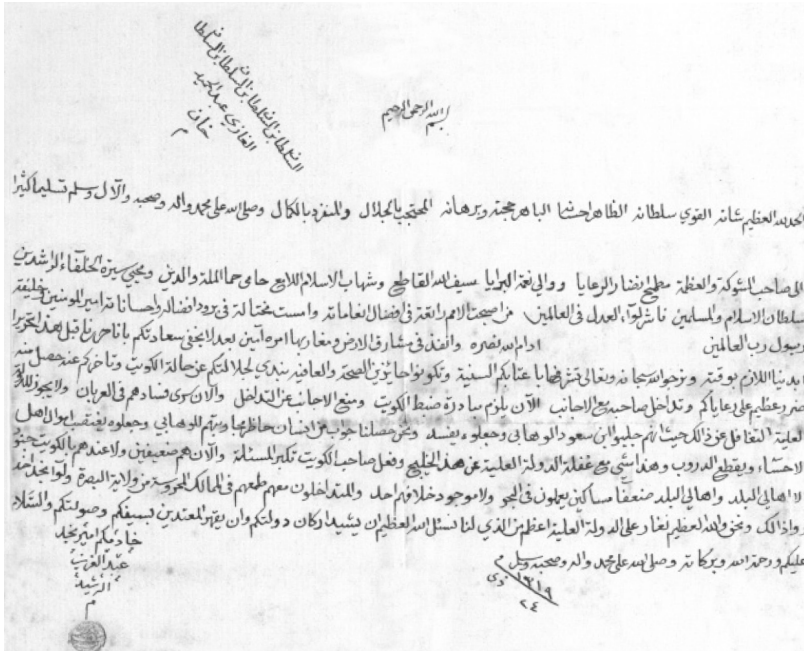 بسم الله الرحمن الرحيم
السلطان بن السلطان بن السلطان بن السلطان
الغازي عبد الحميد
خان
م
الحمد لله العظيم شانه القوي سلطانه الظاهر احسانه الباهر حجته وبرهانه المحتجب بالجلال والمنفرد بالكمال وصلى الله على محمد واله وصحبه والآل وسلم تسليما كثيرا
الى صاحب الشوكة والعظمة مطمح انضار الرعايا ووالي نعمة البرايا سيف الله القاطع وشهاب الاسلام اللامع حامي حما الملة والدين ومحيي سيرة الخلفاء الراشدين
سلطان الاسلام والمسلمين ناشر لواء العدل في العالمين من اصبحت الامم راتعة في افضال انعاماته وامست مختالة في برود افضاله واحساناته امير المومنين وخليفة
رسول رب العالمين ادام الله نصره وانفذ في مشارق الارض ومغاربها امره آمين بعد لا يخفى سعادتكم باننا حررنا قبل هذا تحريرا
ابدينا اللازم بوقته ونرجو الله سبحانه وتعالى باعتابكم السنية وتكونوا حايزين الصحة والعافية نبدي لجلالتكم عن حالة الكويت وتاخركم عنه حصل منه
ضرر عظيم على رعاياكم وتداخل صاحبه مع الاجانب الآن يلزم مبادرة ضبط الكويت ومنع الاجانب عن التداخل والآن سرى فسادهم في العربان ولا يجوز للدولة
العلية التغافل عن ذلك حيث انهم جلبوا ابن سعود الوهابي وجعلوه يفسد ونحن حضلنا جوانب وجعلوه اموال اهل
الاحساء ويقطع الدروب وهذا شي مع غفلة الدولة العلية عن هذا الخليج وفعل صاحب الكويت تكبر المسئلة والآن هم ضعيفين ولا عندهم بالكويت
لا اهالي البلد واهالي البلد ضعفا مساكين يعملون في ولا موجود خلافهم حد والمتداخلون معهم طمعهم في الممالك المحروسة من ولاية البصرة ولوا نجد
واذالك ونحن والله العظيم نغار على الدولة العلية اعظم من الذي لنا نسئل الله العظيم ان يشيد اركان دولتكم وان يقهر المعتدين بسيفكم وصولتكم والسلام
عليكم ورحمة الله وبركاته وصلى الله على محمد واله وصحبه وسلم
خادمكم امير نجد
عبد العزيز
الرشيد
م
١٣١٩
٢٤